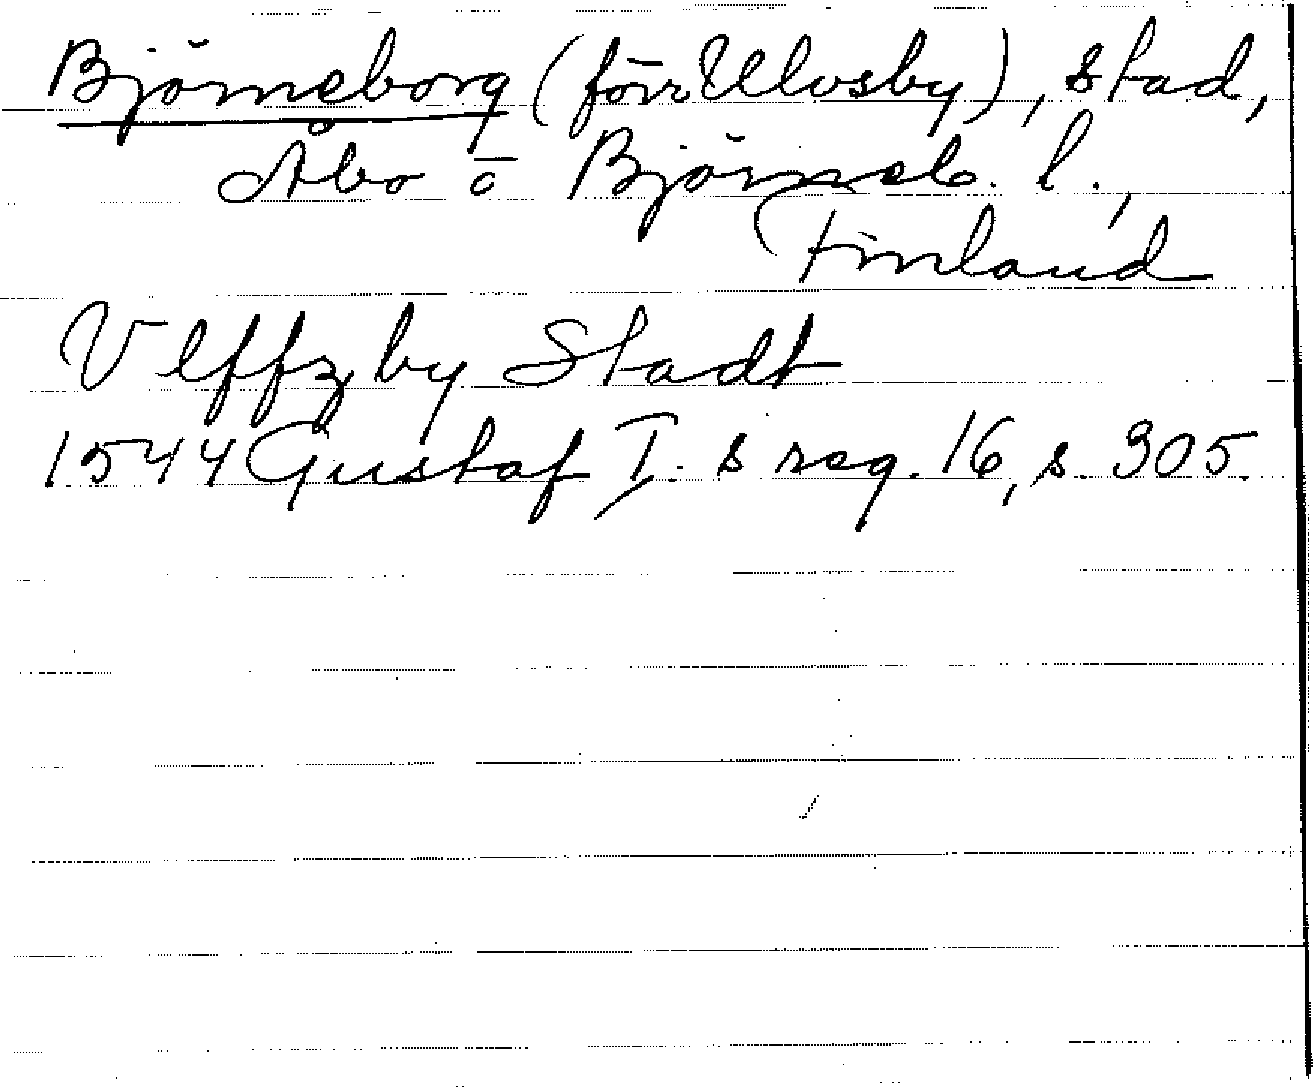 Björneborg (förr Ulvsby), stad,
Åbo o Björneb. l.,
Finland
Vlffzby Stadt
1544 Gustaf I. s reg. 16, s. 305.